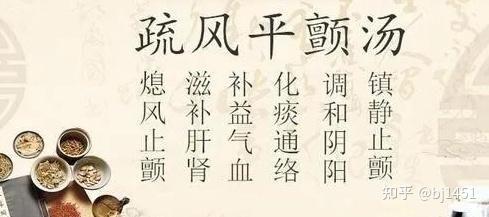 疏风平颤汤
熄风止颤
滋补肝肾
补益气血
化痰通络
调和阴阳
镇静止颤
知乎 @bj1451